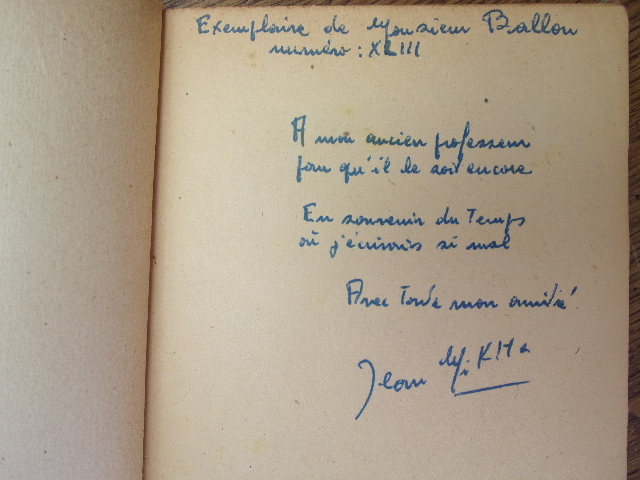 Exemplaire de Monsieur Ballon
numéro : XLIII
A mon ancien professeur
pour qu'il le soit encore
En souvenir du Temps
où j'écrivais si mal
Avec Toute mon amitié
Jean